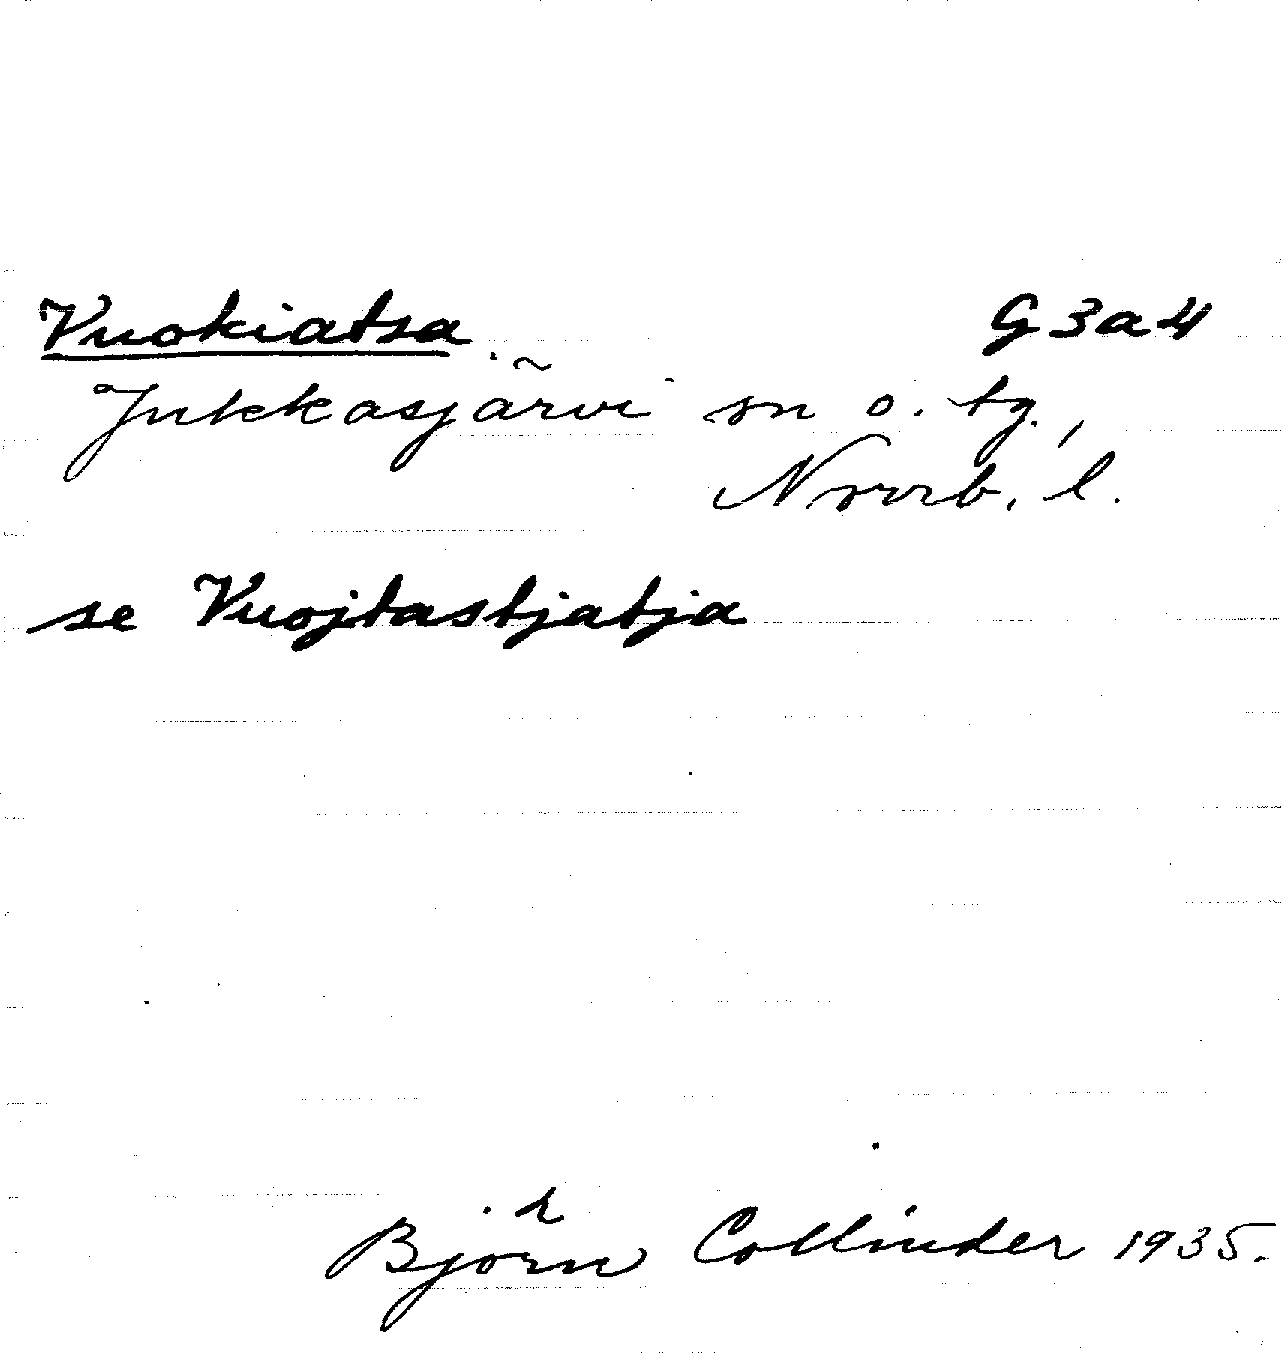 Vuokiatsa G3a4
Jukkasjärvi sn o. tg.,
Norrb. l.
se Vuojtastjatja
Björn Collinder 1935.